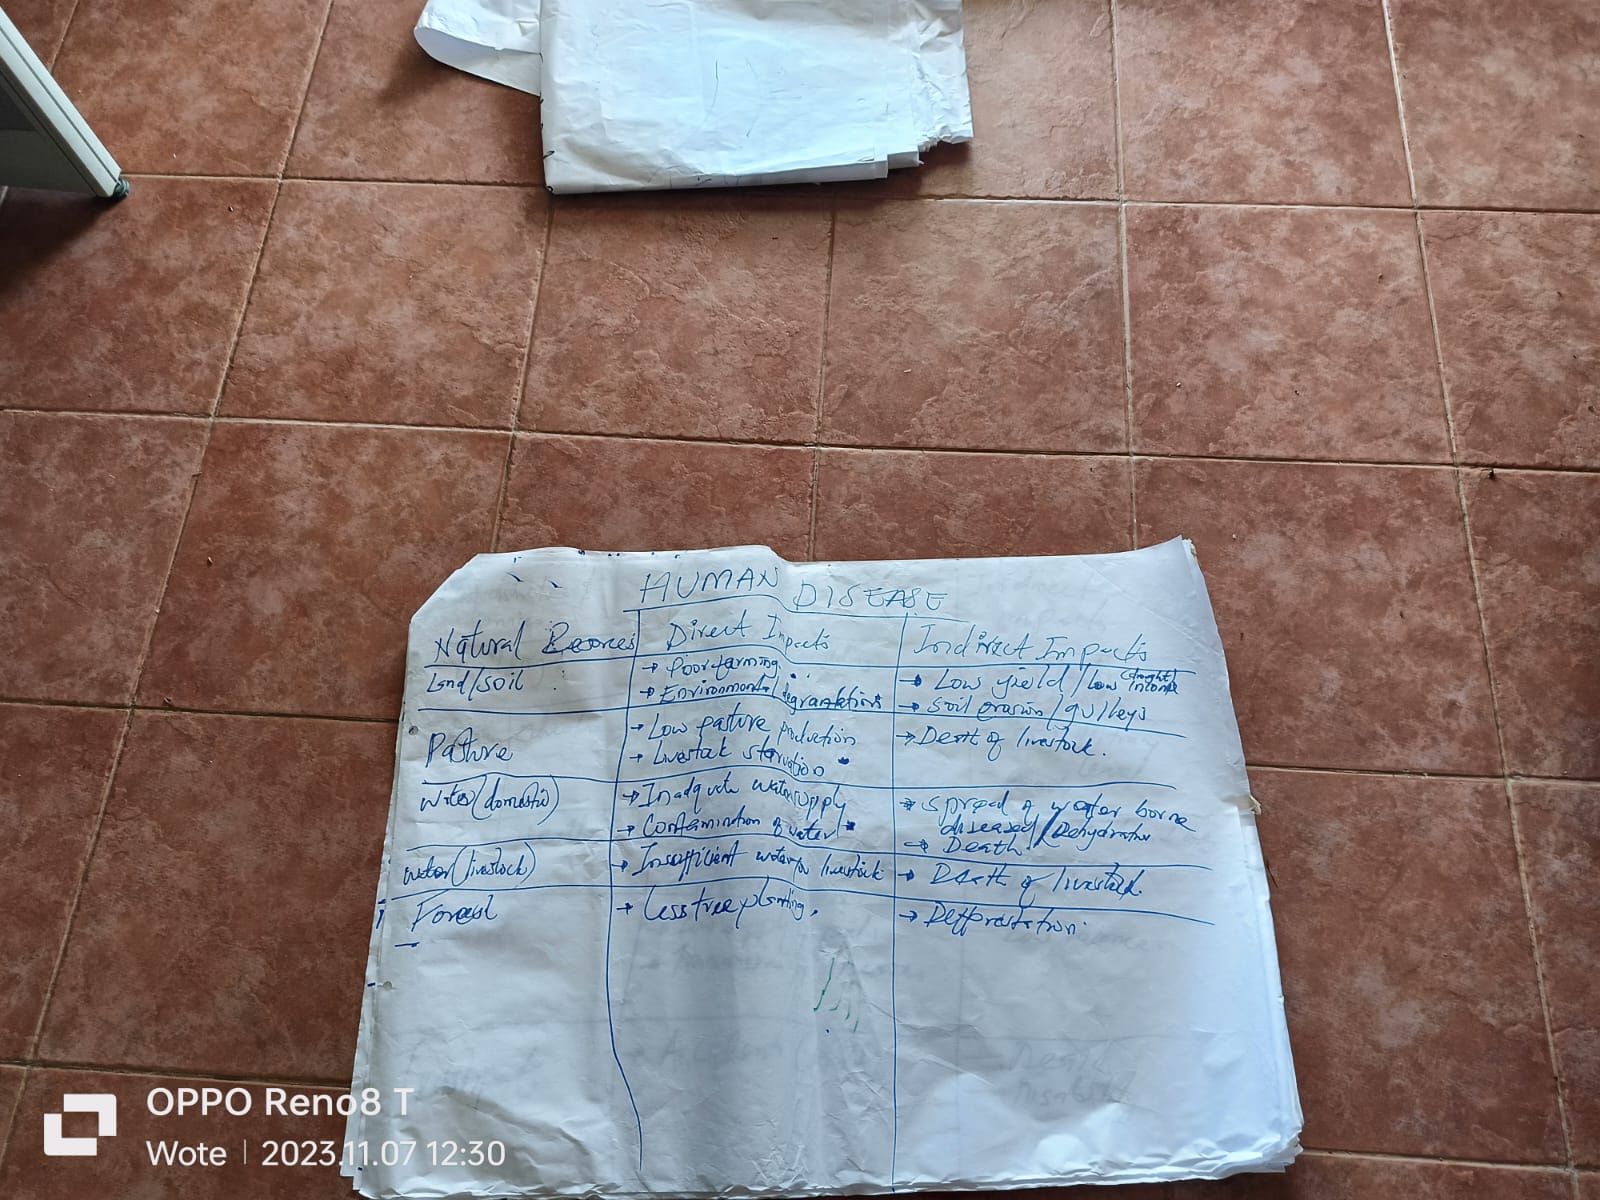 HUMAN DISEASE
Natural Resources
Direct Impacts
Indirect Impacts
Land/soil
→ Poor farming
→ Environmental degradation
→ Low yield/low income
(drought)
→ soil erosion/gulleys
Pasture
→ Low pasture production
→ Livestock starvation
→ Death of livestock.
Water(domestic)
→ Inadquate water supply
→ Contamination of water
→ Spread of water borne
diseased/Dehydration
→ Death
Water(livestock)
→ Insufficient water for livestock
→ Death of livestock.
Forest
→ Less tree planting.
→ Defforestation.
OPPO Reno8 T
Wote | 2023.11.07 12:30